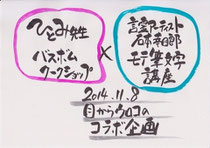 ひとみ先生
バスボム
ワークショップ
×
言書アーティスト
モテ筆文字
講座
2014.11.8
目からウロコの
コラボ企画